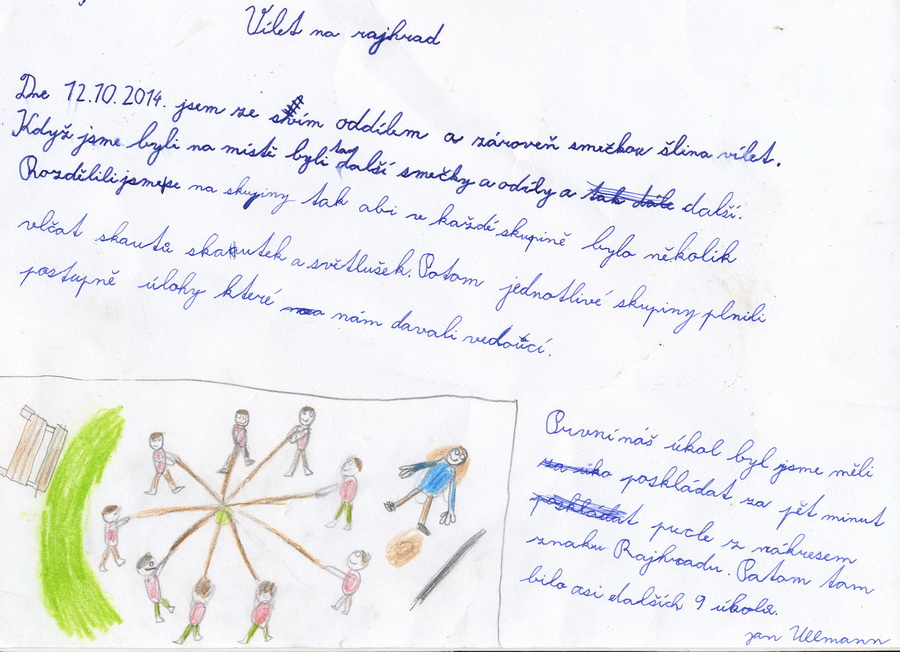 Vílet na rajhrad
Dne 12.10.2014. jsem ze svím oddílem a zároveň smečkou šlina vílet.
Když jsme byli na místě byli tam další smečky a odíly a tak dále další.
Rozdělili jsme se na skupiny tak abi v každé skupině bylo několik
vlčat skautů skautek a světlušek. Potom jednotlivé skupiny plnili
postupně úlohy které nám davali vedoucí.
Pruvní náš úkol byl jsme měli
za úko poskládat za pět minut
poskládat pucle z nákresem
znaku Rajhradu. Patom tam
bilo asi dalších 9 úkolů.
jan Ullmann